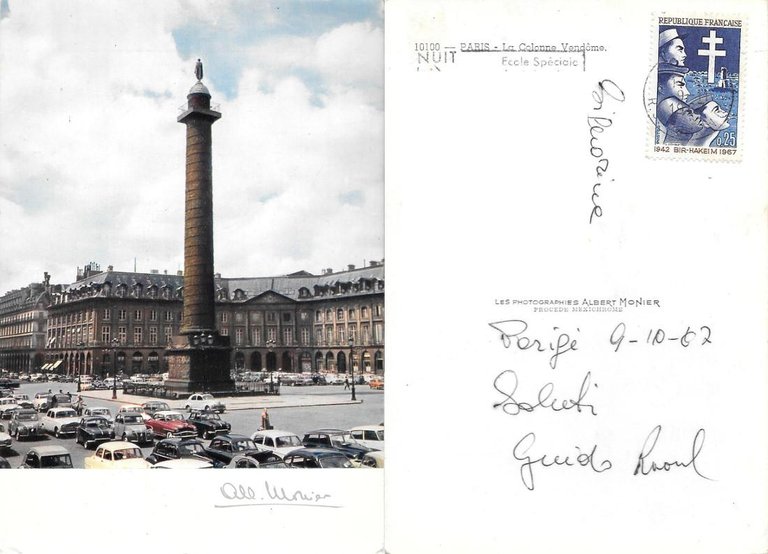 Alb. Monier
10100 — PARIS - La Colonne Vendôme.
NUIT
Ecole Spéciale
REPUBLIQUE FRANÇAISE
0,25
1942 BIR-HAKEIM 1967
LES PHOTOGRAPHIES ALBERT MONIER
PROCÉDÉ MEXICHROME
Parigi 9-10-67
Saluti
Guido Raoul